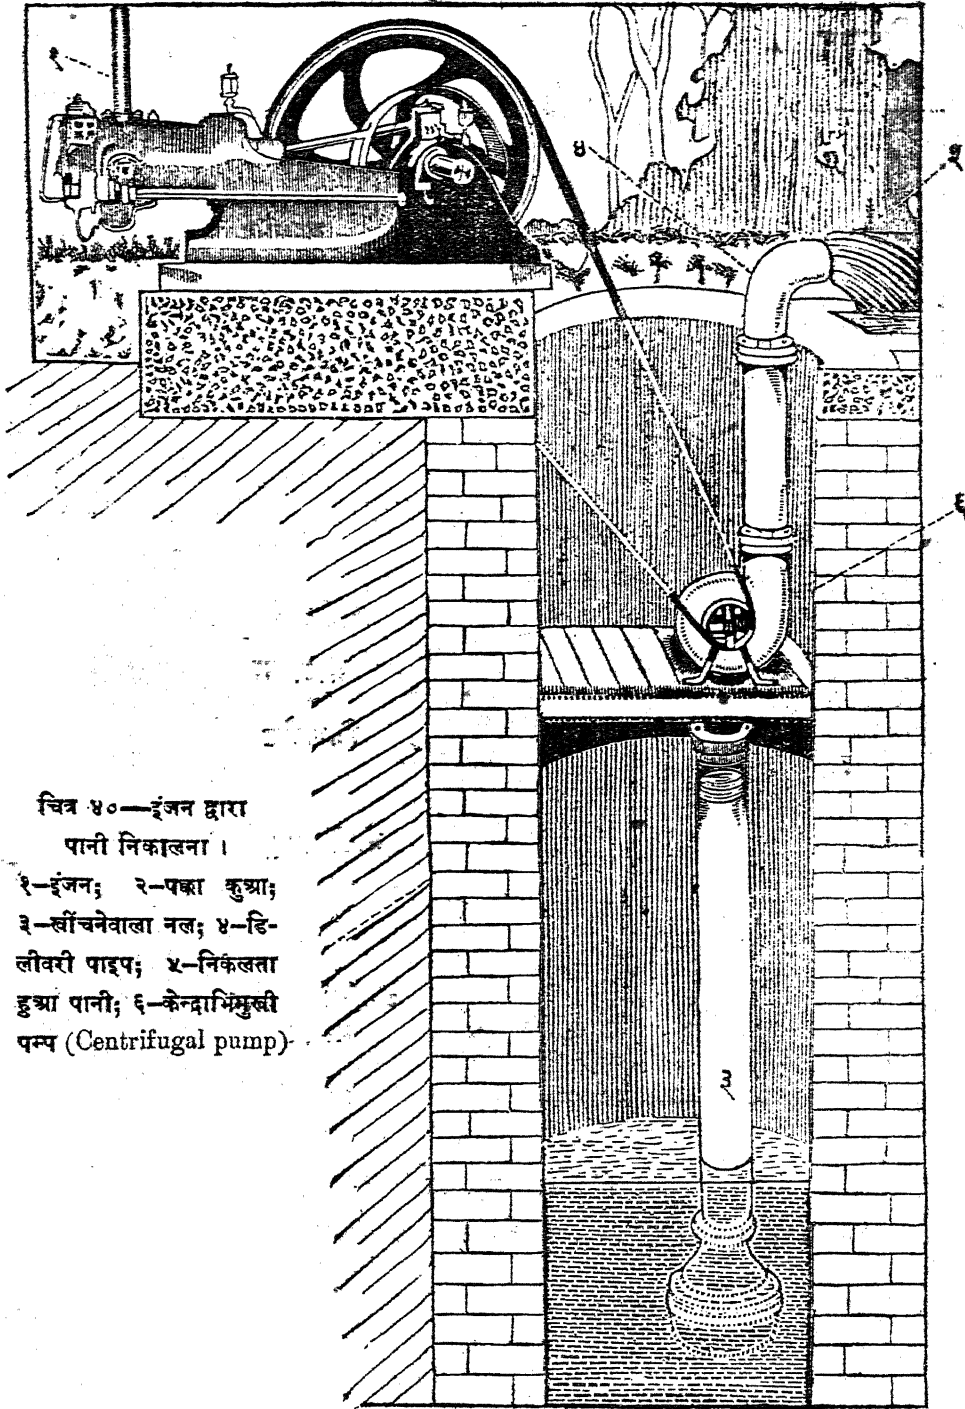 १
४
२
६
३
चित्र ४०—इंजन द्वारा
पानी निकालना ।
१–इंजन; २–पक्का कुआ;
३–खींचनेवाला नल; ४–डि-
लीवरी पाइप; ५–निकलता
हुआ पानी; ६–केन्द्राभिमुखी
पम्प (Centrifugal pump)